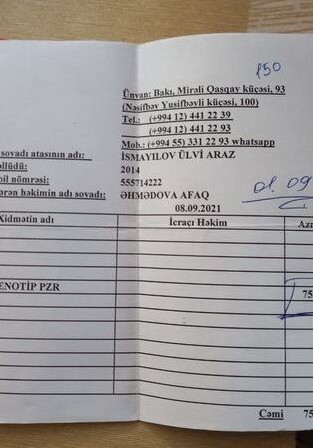 150
Ünvan: Bakı, Mirəli Qaşqay küçəsi, 93
(Nəsifbəy Yusifbəyli küçəsi, 100)
Tel.: (+994 12) 441 22 39
(+994 12) 441 22 93
Mob.: (+994 55) 331 22 93 whatsapp
soyadı atasının adı: İSMAYILOV ÜLVİ ARAZ
əllüdü: 2014
bil nömrəsi: 555714222
ərən həkimin adı soyadı: ƏHMƏDOVA AFAQ
01.09
08.09.2021
Xidmətin adı İcraçı Həkim Azn
ENOTİP PZR 75
Cəmi 75